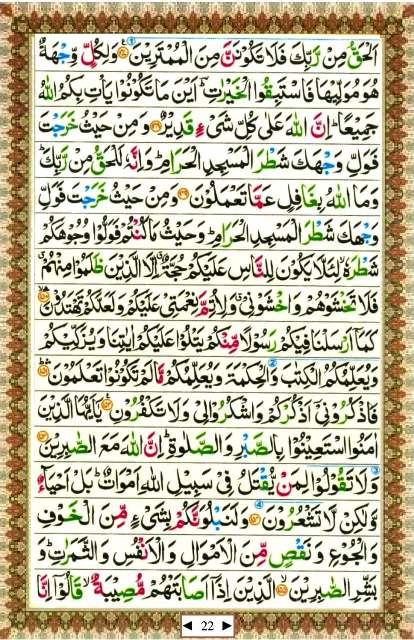 الۡحَقُّ مِنۡ رَّبِّكَ فَلَا تَكُوۡنَنَّ مِنَ الۡمُمۡتَرِيۡنَ ۝ وَلِكُلٍّ وِّجۡهَةٌ
هُوَ مُوَلِّيۡهَا فَاسۡتَبِقُوا الۡخَيۡرٰتِ ؕ اَيۡنَ مَا تَكُوۡنُوۡا يَاۡتِ بِكُمُ اللّٰهُ
جَمِيۡعًا ؕ اِنَّ اللّٰهَ عَلٰى كُلِّ شَىۡءٍ قَدِيۡرٌ ۝ وَمِنۡ حَيۡثُ خَرَجۡتَ
فَوَلِّ وَجۡهَكَ شَطۡرَ الۡمَسۡجِدِ الۡحَرَامِ ؕ وَاِنَّهٗ لَلۡحَقُّ مِنۡ رَّبِّكَ ؕ
وَمَا اللّٰهُ بِغَافِلٍ عَمَّا تَعۡمَلُوۡنَ ۝ وَمِنۡ حَيۡثُ خَرَجۡتَ فَوَلِّ
وَجۡهَكَ شَطۡرَ الۡمَسۡجِدِ الۡحَرَامِ ؕ وَحَيۡثُ مَا كُنۡتُمۡ فَوَلُّوۡا وُجُوۡهَكُمۡ
شَطۡرَهٗ ۙ لِئَلَّا يَكُوۡنَ لِلنَّاسِ عَلَيۡكُمۡ حُجَّةٌ ۙ اِلَّا الَّذِيۡنَ ظَلَمُوۡا مِنۡهُمۡ
فَلَا تَخۡشَوۡهُمۡ وَاخۡشَوۡنِىۡ وَلِاُتِمَّ نِعۡمَتِىۡ عَلَيۡكُمۡ وَلَعَلَّكُمۡ تَهۡتَدُوۡنَ ۝
كَمَآ اَرۡسَلۡنَا فِيۡكُمۡ رَسُوۡلًا مِّنۡكُمۡ يَتۡلُوۡا عَلَيۡكُمۡ اٰيٰتِنَا وَيُزَكِّيۡكُمۡ
وَيُعَلِّمُكُمُ الۡكِتٰبَ وَالۡحِكۡمَةَ وَيُعَلِّمُكُمۡ مَّا لَمۡ تَكُوۡنُوۡا تَعۡلَمُوۡنَ ۝
فَاذۡكُرُوۡنِىۡٓ اَذۡكُرۡكُمۡ وَاشۡکُرُوۡا لِىۡ وَلَا تَكۡفُرُوۡنِ ۝ يٰٓاَيُّهَا الَّذِيۡنَ
اٰمَنُوا اسۡتَعِيۡنُوۡا بِالصَّبۡرِ وَالصَّلٰوةِ ؕ اِنَّ اللّٰهَ مَعَ الصّٰبِرِيۡنَ ۝
وَلَا تَقُوۡلُوۡا لِمَنۡ يُّقۡتَلُ فِىۡ سَبِيۡلِ اللّٰهِ اَمۡوَاتٌ ؕ بَلۡ اَحۡيَآءٌ
وَّلٰـكِنۡ لَّا تَشۡعُرُوۡنَ ۝ وَلَنَبۡلُوَنَّكُمۡ بِشَىۡءٍ مِّنَ الۡخَوۡفِ
وَالۡجُوۡعِ وَنَقۡصٍ مِّنَ الۡاَمۡوَالِ وَالۡاَنۡفُسِ وَالثَّمَرٰتِ ؕ وَ
بَشِّرِ الصّٰبِرِيۡنَ ۝ الَّذِيۡنَ اِذَآ اَصَابَتۡهُمۡ مُّصِيۡبَةٌ ۙ قَالُوۡٓا اِنَّا
◄ 22 ►